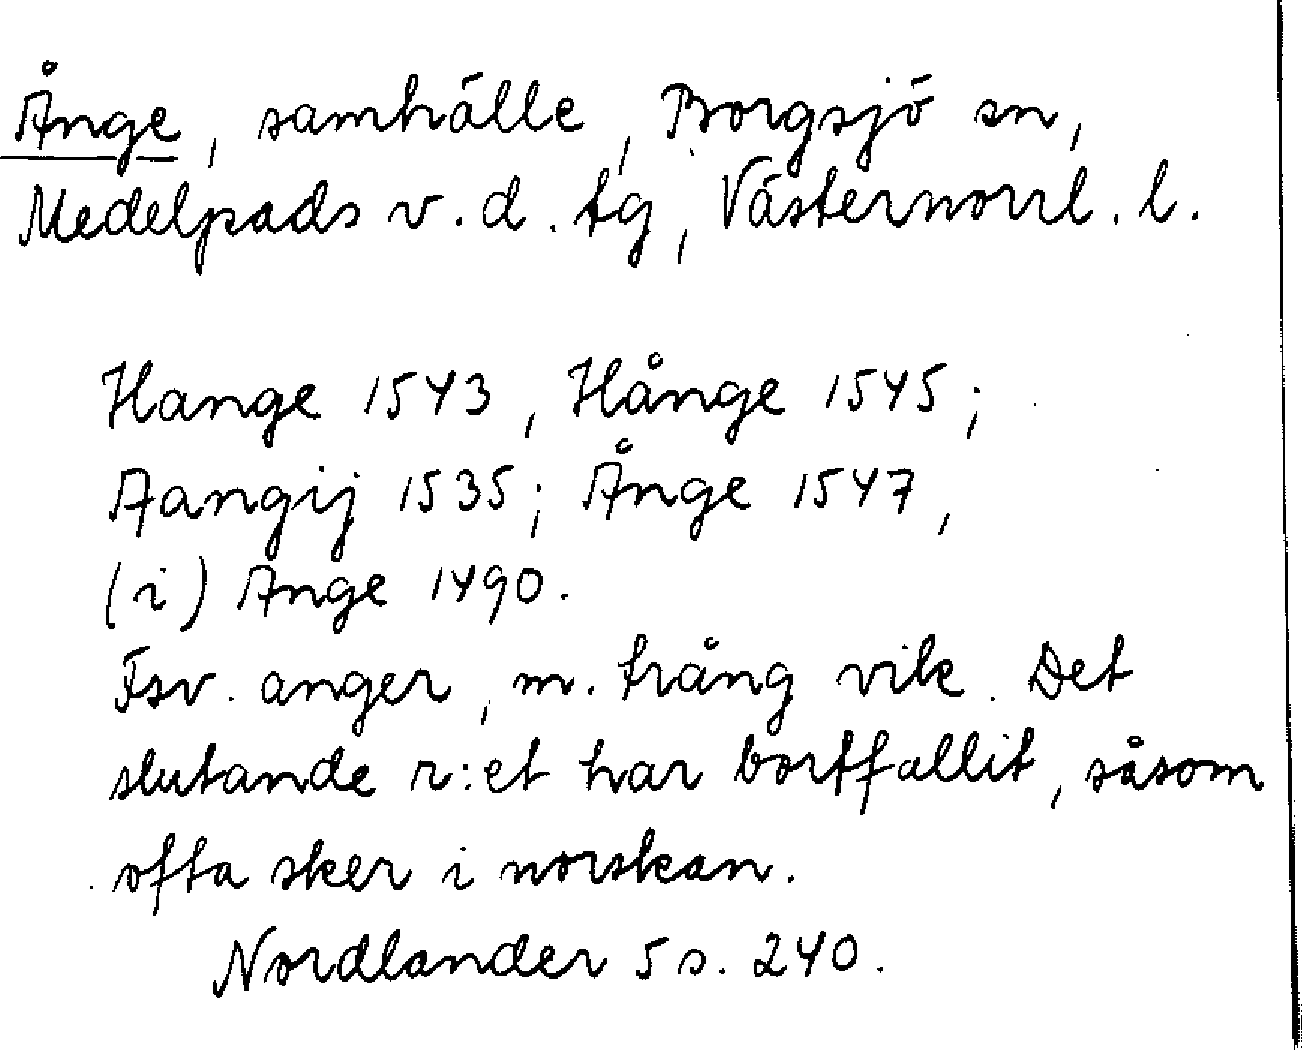 Ånge, samhälle, Borgsjö sn,
Medelpads v. d. tg, Västernorrl. l.
Hange 1543, Hånge 1545;
Aangij 1535; Ånge 1547,
(i) Ange 1490.
Fsv. anger, m. trång vik. Det
slutande r:et har bortfallit, såsom
ofta sker i norskan.
Nordlander 5 s. 240.